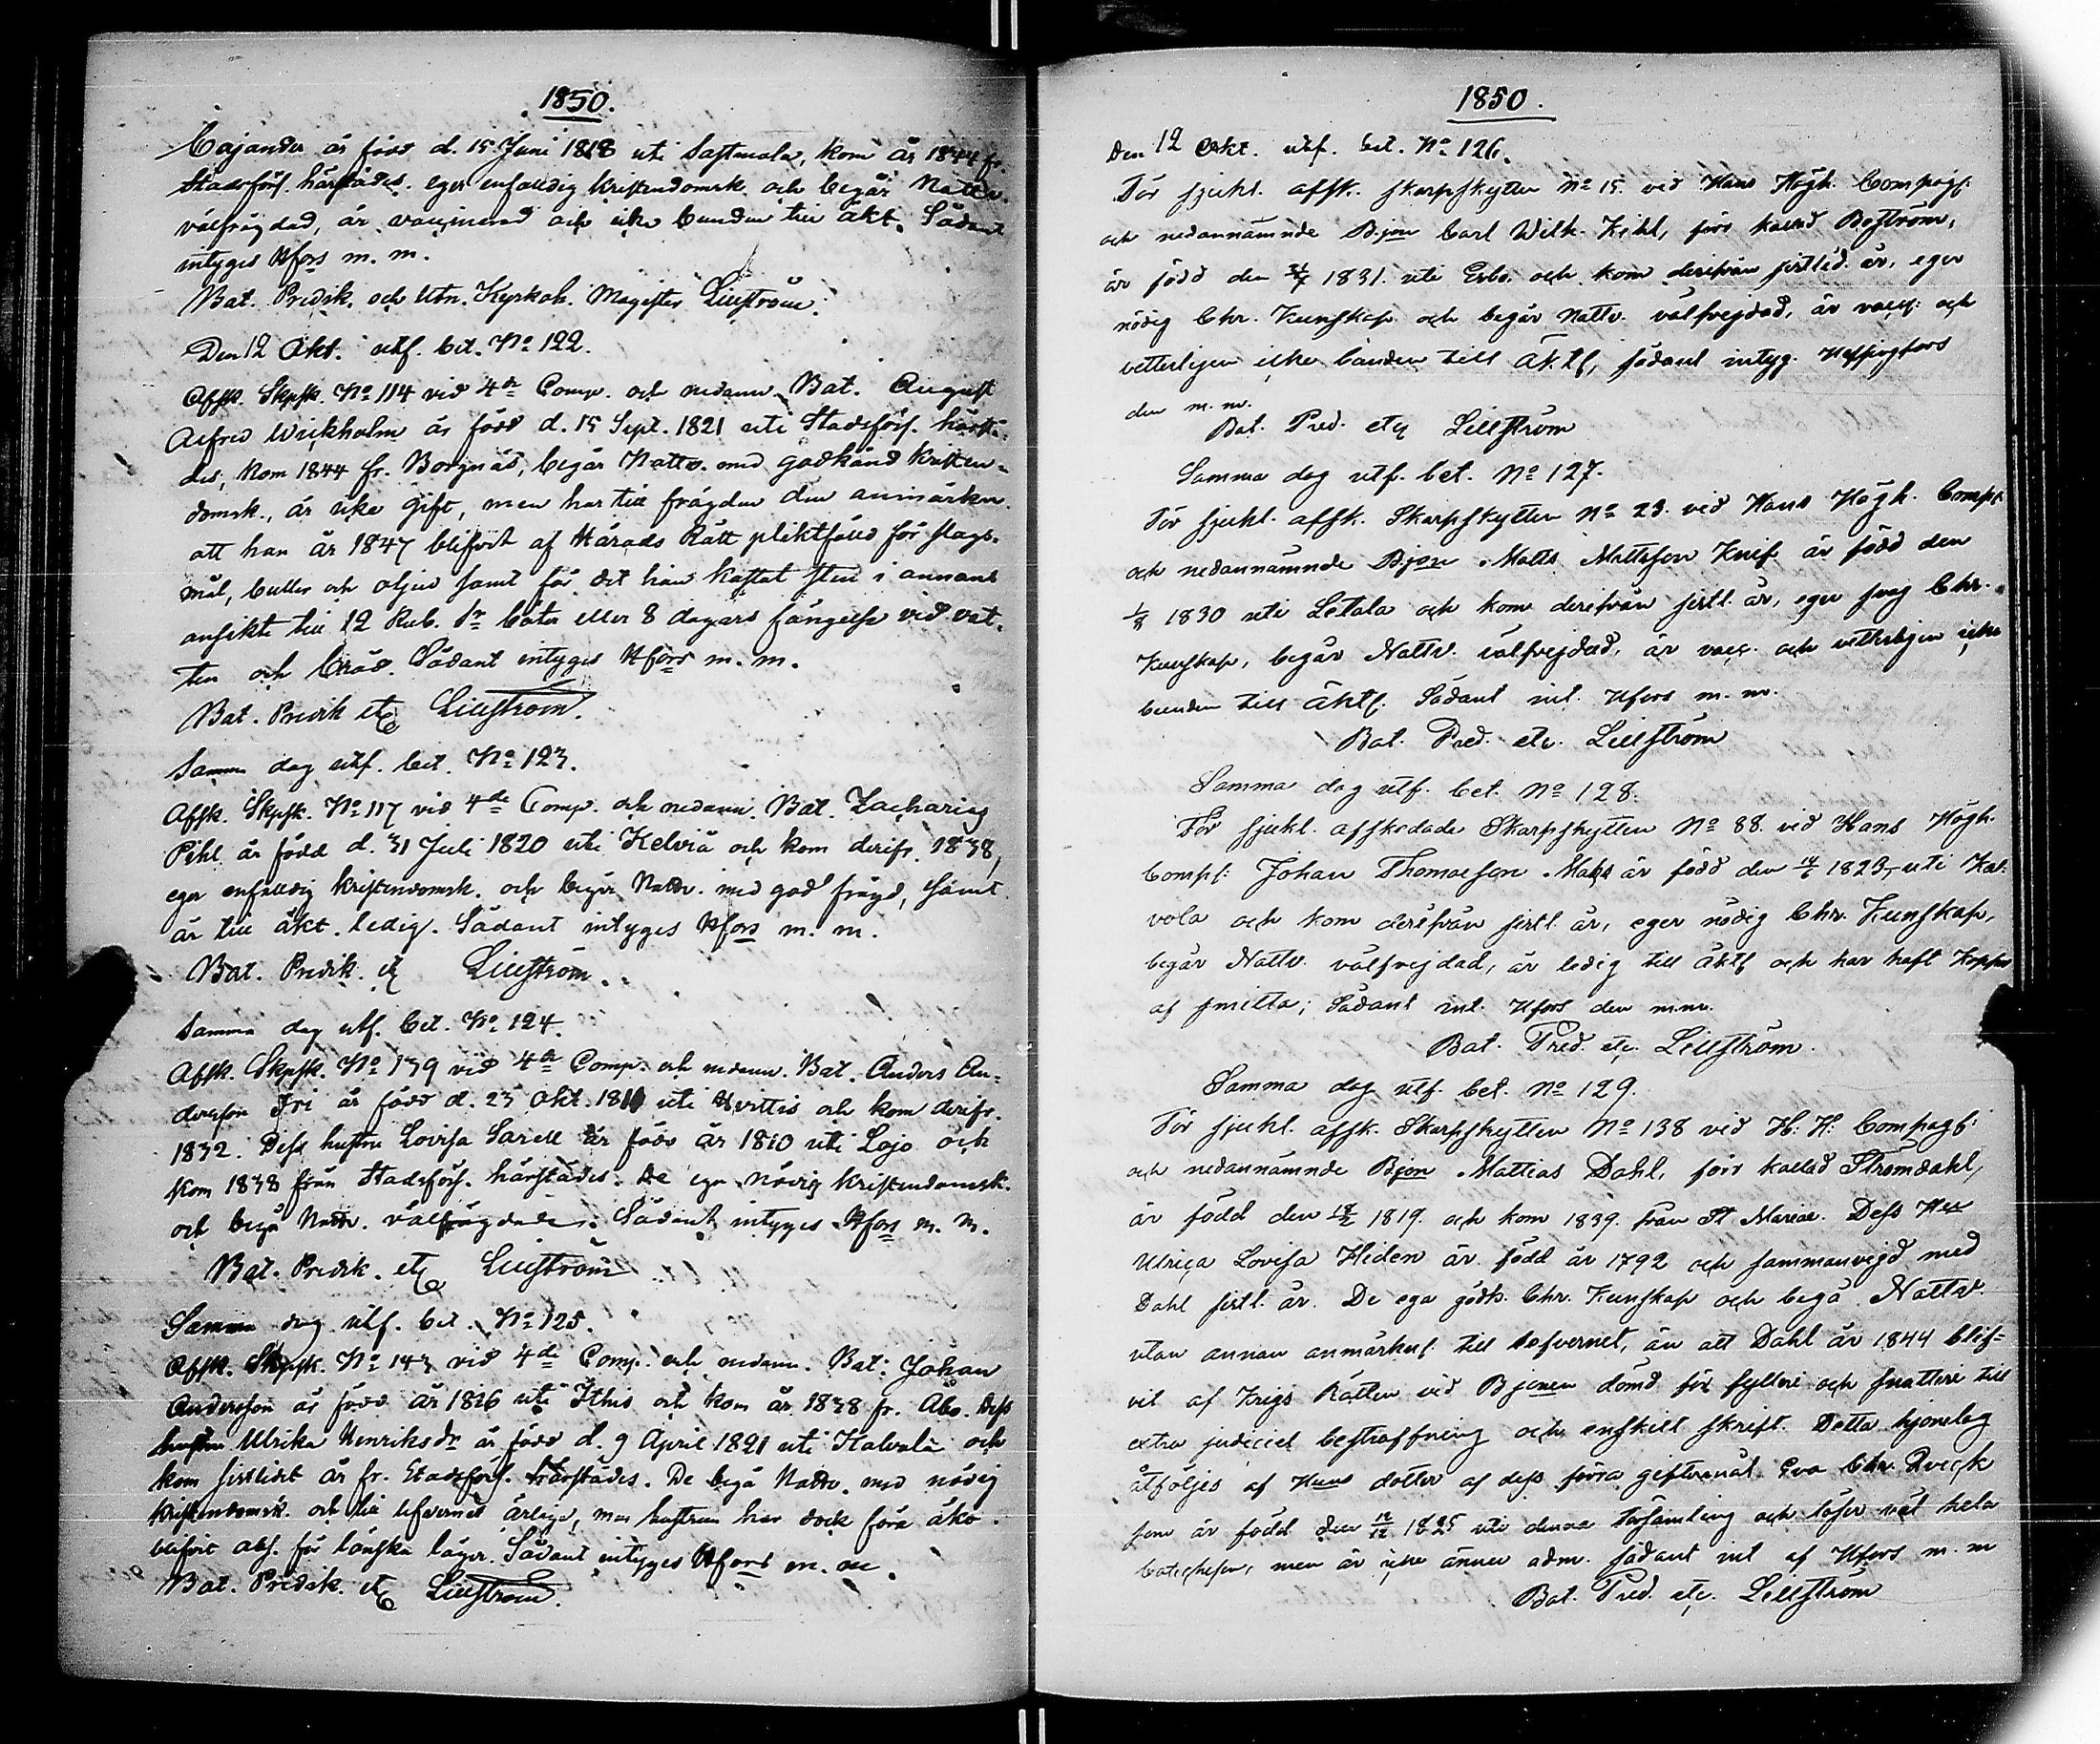 1850.
Cajander är född d. 15 Juni 1818 uti Sastmola, kom år 1844 fr.
Stadsförs. härstädes. eger enfaldig kristendomsk. och begår Nattv.
välfrägdad, är vaccinerad och icke bunden till äkt. Sådant
intyges Hfors m. m.
Bat. Predik. och Utn. Kyrkoh. Magister Lillström.
Den 12 Okt. utf. bet. No 122.
Afsk. Skpsk. No 114 vid 4de Comp. och nedann. Bat. August
Alfred Wickholm är född d. 15 Sept. 1821 uti Stadsförs. härstä-
des, kom 1844 fr. Borgnäs, begår Nattv. med godkänd kristen-
domsk., är icke gift, men har till frägden den anmärkn.
att han år 1847 blifvit af Härads Rätt pliktfälld för slags-
mål, buller och oljud samt för det han kastat sten i annans
ansikte till 12 Rub. Sr böter eller 8 dagars fängelse vid vat-
ten och bröd. Sådant intyges Hfors m. m.
Bat. Predik etc Lillström.
Samma dag utf. bet. No 123.
Afsk. Skpsk. No 117 vid 4de Comp. och nedann. Bat. Zacharias
Pihl är född d. 31 Juli 1820 uti Kelviå och kom derifr. 1838,
eger enfaldig kristendomsk. och begår Nattv. med god frägd, samt
är till äkt. ledig. Sådant intyges Hfors m. m.
Bat. Predik. etc Lillström.
Samma dag utf. bet. No 124.
Afsk. Skpsk. No 139 vid 4de Comp. och nedann. Bat. Anders An-
dersson Fri är född d. 23 Okt. 1810 uti Hvittis och kom derifr.
1832. Dess hustru Lovisa Sarell är född år 1810 uti Lojo och
kom 1838 från Stadsförs. härstädes. De ega nödig kristendomsk.
och begå Nattv. välfrägdade. Sådant intyges Hfors m. m.
Bat. Predik. etc Lillström
Samma dag utf. bet. No 125.
Afsk. Skpsk. No 143 vid 4de Comp. och nedann. Bat. Johan
Andersson är född år 1816 uti Ithis och kom år 1838 fr. Åbo. Dess
hustru Ulrika Henriksdr är född d. 9 April 1821 uti Kalvola och
kom sistlidit år fr. Stadsförs. härstädes. De begå Nattv. med nödig
kristendomsk. och till lefvernet ärliga, men hustrun har dock förr äkt.
blifvit abs. för lönska läger. Sådant intyges Hfors m. m.
Bat. Predik. etc Lillström.
1850.
Den 12 Okt. utf. bet. No 126.
För sjukl. afsk. skarpskytten No 15 vid Hans Högh. Compagf:
och nedannämnde Bjon Carl Wilh. Kihl, förr kallad Boström,
är född den 1831. uti Esbo och kom derifrån sistlid. år, eger
nödig Chr. Kunskap och begår Nattv. välfrejdad, är vacc: och
vetterligen icke bunden till Äktf, sådant intyg. Helsingfors
den m. m.
Bat. Pred. etc Lillström
Samma dag utf. bet. No 127.
För sjukl. afsk. Skarpskytten No 23. vid Hans Högh. Compf
och nedannämnde Bjon Matts Mattsson Knif är född den
1/8 1830 uti Letala och kom derifrån sistl. år, eger svag Chr.
Kunskap, begår Nattv. välfrejdad, är vacc. och vetterligen icke
bunden till Äktf. Sådant int. Hfors m. m.
Bat. Pred. etc. Lillström
Samma dag utf. bet. No 128.
För sjukl. afskedade Skarpskytten No 88. vid Hans Högh.
Compf: Johan Thomasson är född den 1823, uti Kal-
vola och kom derifrån sistl. år, eger nödig Chr. Kunskap,
begår Nattv. välfrejdad, är ledig till Äktf och har haft Koppor
af smitta; Sådant int. Hfors den m.m.
Bat. Pred. etc. Lillström.
Samma dag utf. bet. No 129.
För sjukl. afsk. Skarpskytten No 138 vid H: H: Compagf:
och nedannämnde Bjon Mattias Dahl, förr kallad Strömdahl,
är född den 1819. och kom 1839. från St Mariae. Dess Hu
Ulrica Lovisa Hiden är född år 1792 och sammanvigd med
Dahl sistl. år. De ega godk. Chr. Kunskap och begå Nattv.
utan annan anmärkn. till lefvernet, än att Dahl år 1844 blif-
vit af Krigs Rätten vid Bjonen dömd för fylleri och snatteri till
extra judiciel bestraffning och enskilt skrift. Detta hjonelag
åtföljes af Huns dotter af dess förra gifteronål Eva Chr. Qveck
som är född den 1825 uti denna församling och läser väl hela
Catechesen, men är icke ännu adm. sådant int af Hfors m. m
Bat. Pred. etc. Lillström